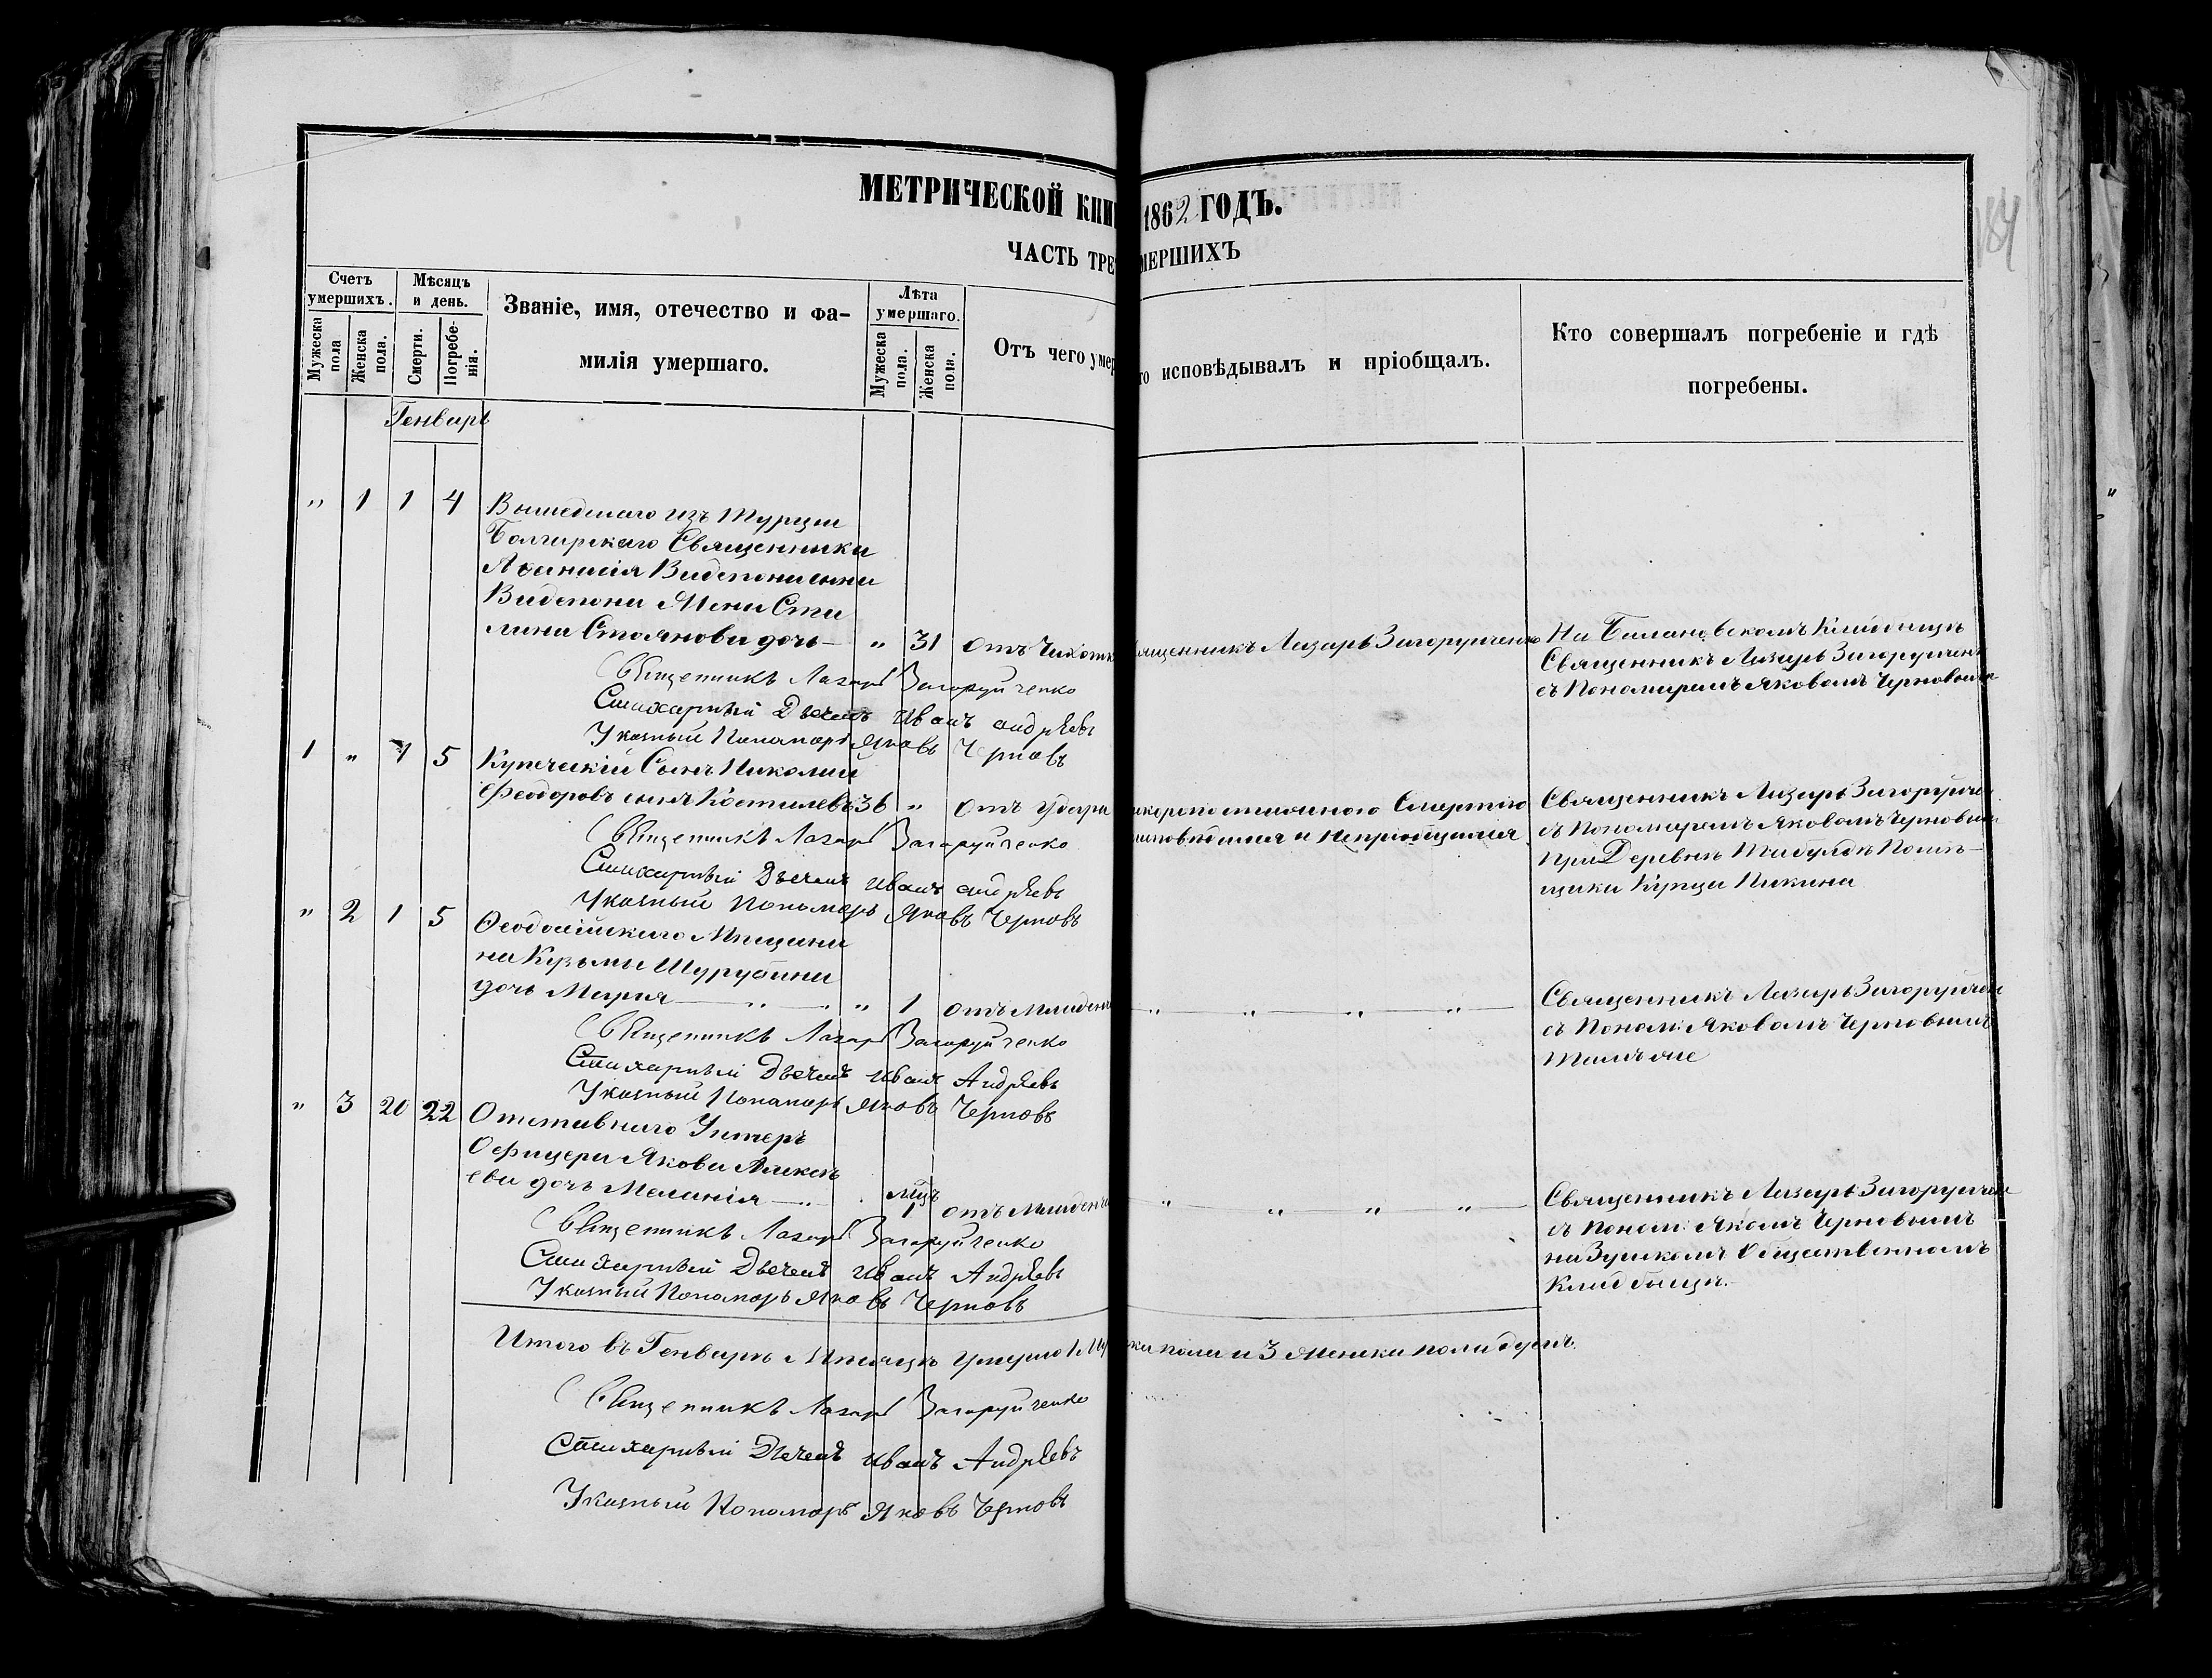 МЕТРИЧЕСКОЙ КНИ 1862 ГОДЪ.
ЧАСТЬ ТРЕ МЕРШИХЪ
184
Счетъ умершихъ.
Мужеска пола
Женска пола.
Мѣсяцъ и день.
Смерти.
Погребенія.
Званіе, имя, отечество и фа-
милія умершаго.
Лѣта умершаго.
Мужеска пола.
Женска пола.
Отъ чего умер
то исповѣдывалъ и пріобщалъ.
Кто совершалъ погребеніе и гдѣ
погребены.
Генварь
" 1 1 4 Вышедшаго изъ Турции
Болгарскаго Священника
Афанасія
лина Стоянова дочь — " 31 отъ Чахотк
ященникъ Лазарь Загоруйченко
На Клайбищѣ
Священникъ Лазарь Загоруйчен
съ Пономаремъ Яковомъ Черновым
Священникъ Лазарь Загоруйченко
Стихарный Дьячекъ Иванъ Андрѣевъ
Указный Пономарь Яковъ Черновъ
1 " 1 5 Купеческій Сынъ Николай
Феодоровъ сынъ Костилевъ 36 " отъ Удара
скоропостижного Смертію
исповѣдался и Непріобщался
Священникъ Лазарь Загоруйчен
съ Пономаремъ Яковомъ Черновым
при Деревнѣ Помѣ-
щика Купца
Священникъ Лазарь Загоруйченко
Стихарный Дьячекъ Иванъ Андрѣевъ
Указный Пономарь Яковъ Черновъ
" 2 1 5 Феодосійскаго Мѣщани
на Кузьмы Шурубина
дочь Марія — " 1 отъ Младенч
Священникъ Лазарь Загоруйчен
съ Поном: Яковомъ Черновымъ
Тамъ же
Священникъ Лазарь Загоруйченко
Стихарный Дьячекъ Иванъ Андрѣевъ
Указный Пономарь Яковъ Черновъ
" 3 20 22 Отставнаго Унтеръ
Офицера Якова Алексѣ
ева дочь Меланія — мцъ 1 отъ Младенч
Священникъ Лазарь Загоруйчен
съ Поном: Яковъ Черновымъ
на Зуйскомъ Общественномъ
Клайбищѣ.
Священникъ Лазарь Загоруйченко
Стихарный Дьячекъ Иванъ Андрѣевъ
Указный Пономарь Яковъ Черновъ
Итого въ Генварѣ Мѣсяцѣ умерло 1 Му ка пола и 3 Женска пола душъ.
Священникъ Лазарь Загоруйченко
Стихарный Дьячекъ Иванъ Андрѣевъ
Указный Пономарь Яковъ Черновъ